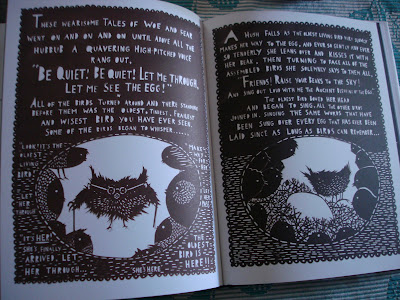 THESE WEARISOME TALES OF WOE AND FEAR
WENT ON AND ON AND ON UNTIL ABOVE ALL THE
HUBBUB A QUAVERING HIGH-PITCHED VOICE
RANG OUT,
"BE QUIET! BE QUIET! LET ME THROUGH,
LET ME SEE THE EGG!"
ALL OF THE BIRDS TURNED AROUND AND THERE STANDING
BEFORE THEM WAS THE OLDEST, TINIEST, FRAILEST
AND WISEST BIRD YOU HAVE EVER SEEN.
SOME OF THE BIRDS BEGAN TO WHISPER......
"LOOK! IT'S THE
OLDEST
LIVING
BIRD.
LET
HER
THROUGH
IT'S HER
SHE'S FINALLY
ARRIVED, LET
HER THROUGH...
SHE'S HERE
MAKE
THE
OLDEST
BIRD IS
HERE!!
A HUSH FALLS AS THE OLDEST LIVING BIRD VERY SLOWLY
MAKES HER WAY TO THE EGG, AND EVER SO GENTLY AND EVER
SO TENDERLY SHE LEANS OVER AND KISSES IT WITH
HER BEAK, THEN TURNING TO FACE ALL OF THE
ASSEMBLED BIRDS SHE SOLEMNLY SAYS TO THEM ALL,
"FRIENDS! RAISE YOUR BEAKS TO THE SKY!
AND SING OUT LOUD WITH ME THE ANCIENT BLESSING OF THE EGG."
THE OLDEST BIRD BOWED HER HEAD
AND BEGAN TO SING. ALL THE OTHER BIRDS
JOINED IN, SINGING THE SAME WORDS THAT HAVE
BEEN SUNG OVER EVERY EGG THAT HAS EVER BEEN
LAID SINCE AS LONG AS BIRDS CAN REMEMBER....